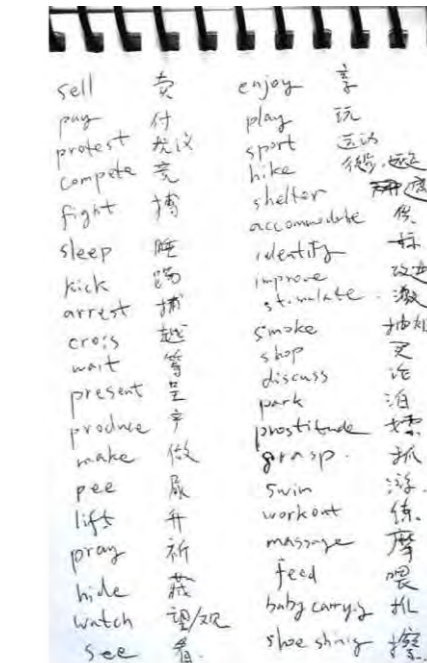 sell 卖
pay 付
protest 抗议
compete 竞
fight 搏
sleep 睡
kick 踢
arrest 捕
cross 越
wait 等
present 呈
produce 产
make 做
pee 尿
lift 升
pray 祈
hide 藏
watch 望/观
see 看
enjoy 享
play 玩
sport 运动
hike
shelter
accommodate
identify 标
improve 改进
stimulate 激
smoke 抽烟
shop 买
discuss 论
park 泊
prostitude 嫖
grasp. 抓
swin 游.
workout 练.
massage 摩
feed 喂
baby carry.g
shoe shinig 擦